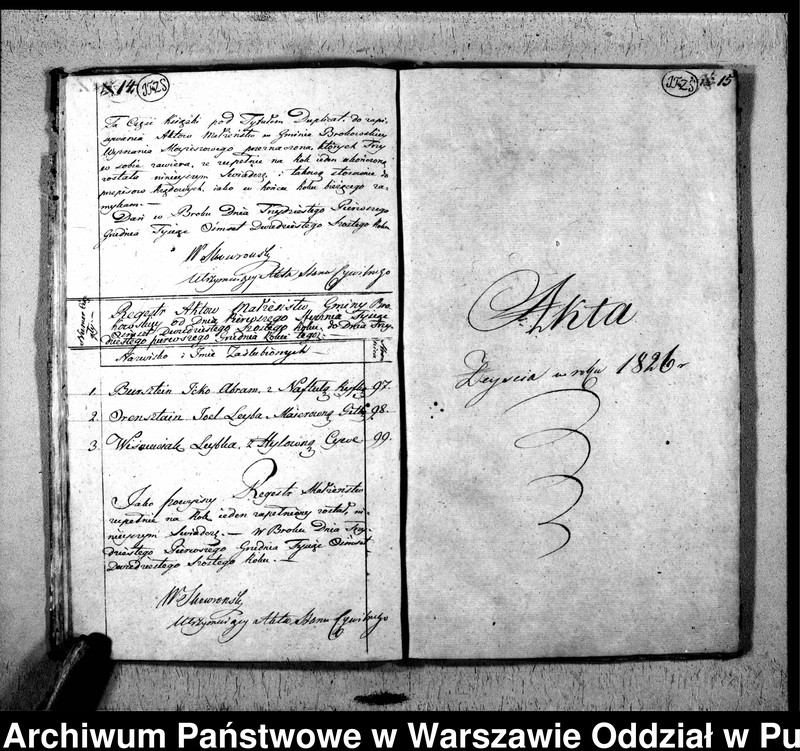 14 1728
Ta Część Książki pod Tytułem Duplikat. do zapi-
sywania Aktow Małżeństw w Gminie Brokowskiey
Wyznania Moyżeszowego przeznaczona, których Trzy
w sobie zawiera, że zupełnie na Rok ieden ukończoną
została ninieyszym Świadczę; i takową stosownie do
przepisow Rządowych, iako w końcu Roku bieżącego za-
mykam.—
Dań w Broku Dnia Trzydziestego Pierwszego
Grudnia Tysiąc Ośmset Dwudziestego Szostego Roku
W Skowroński
Utrzymuiący Akta Stanu Cywilnego
Numer
Regestr Aktow Małżeństw, Gminy Bro-
kowskiey od Dnia Pierwszego Stycznia Tysiąc
Ośmset Dwudziestego Szostego Roku, do Dnia Trzy-
dziestego pierwszego Grudnia Roku tegoż
Nazwisko i Imie Zaślubionych —
1. Bursztein Icko Abram. z Naftulą 97.
2. Orensztain Joel Leyba. Maierowną 98.
3. Wiśniewiak Leybka. z Hylowną 99.
Jako powyższy Regestr Małżeństw
zupełnie na Rok ieden zapełniony został, ni-
nieyszym Świadczę.— W Broku Dnia Trzy-
dziestego Pierwszego Grudnia Tysiąc Ośmset
Dwudziestego Szostego Roku.—
W Skowroński
Utrzymuiący Akta Stanu Cywilnego
1728 15
Akta
Zeyscia w roku 1826 r
Archiwum Państwowe w Warszawie Oddział w Pu